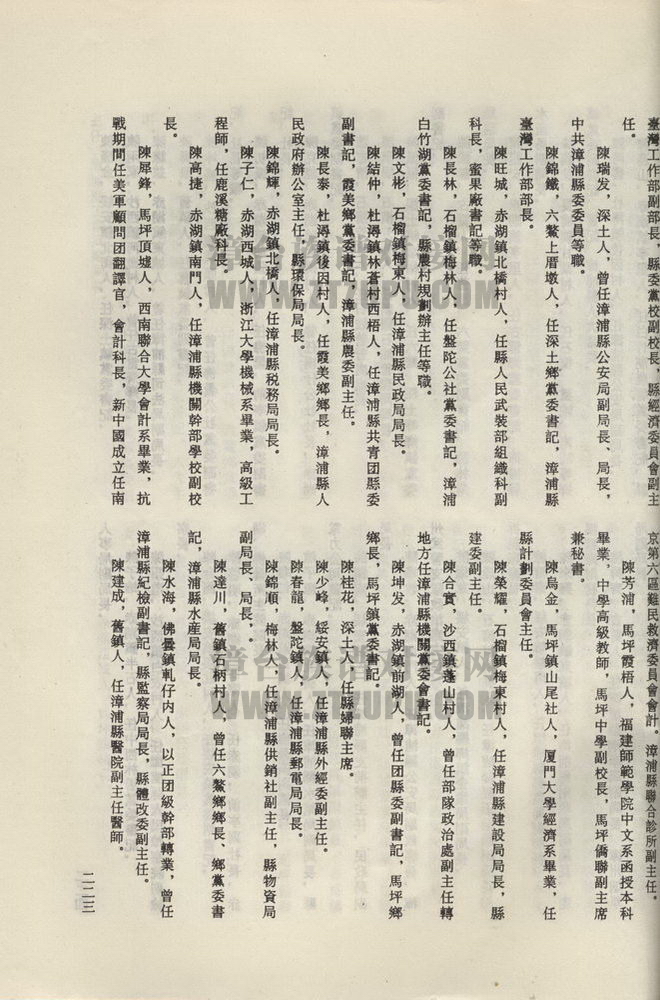 臺灣工作部副部長、縣委黨校副校長、縣經濟委員會副主
任。
陳瑞发，深土人，曾任漳浦縣公安局副局長、局長，
中共漳浦縣委委員等職。
陳錦鐵，六鰲上厝墩人，任深土鄉黨委書記，漳浦縣
臺灣工作部部長。
陳旺城，赤湖鎮北橋村人，任縣人民武裝部組織科副
科長，蜜果廠書記等職。
陳長林，石榴鎮梅林人，任盤陀公社黨委書記，漳浦
白竹湖黨委書記，縣農村規劃辦主任等職。
陳文彬，石榴鎮梅東人，任漳浦縣民政局局長。
陳結仲，杜潯鎮林蒼村西梧人，任漳浦縣共青团縣委
副書記，霞美鄉黨委書記，漳浦縣農委副主任。
陳長泰，杜潯鎮後因村人，任霞美鄉鄉長，漳浦縣人
民政府辦公室主任，縣環保局局長。
陳錦輝，赤湖鎮北橋人，任漳浦縣稅務局局長。
陳子仁，赤湖西城人，浙江大學機械系畢業，高級工
程師，任鹿溪糖廠科長。
陳高捷，赤湖鎮南門人，任漳浦縣機關幹部學校副校
長。
陳犀鋒，馬坪頂墟人，西南聯合大學會計系畢業，抗
戰期間任美軍顧問团翻譯官，會計科長，新中國成立任南
京第六區難民救濟委員會會計。漳浦縣聯合診所副主任。
陳芳浦，馬坪霞梧人，福建師範學院中文系函授本科
畢業，中學高級教師，馬坪中學副校長，馬坪僑聯副主席
兼秘書。
陳烏金，馬坪鎮山尾社人，厦門大學經濟系畢業，任
縣計劃委員會主任。
陳榮耀，石榴鎮梅東村人，任漳浦縣建設局局長，縣
建委副主任。
陳合實，沙西鎮蓬山村人，曾任部隊政治處副主任轉
地方任漳浦縣機關黨委會書記。
陳坤发，赤湖鎮前湖人，曾任团縣委副書記，馬坪鄉
鄉長，馬坪鎮黨委書記。
陳桂花，深土人，任縣婦聯主席。
陳少峰，綏安鎮人，任漳浦縣外經委副主任。
陳春龍，盤陀鎮人，任漳浦縣郵電局局長。
陳錦順，梅林人，任漳浦縣供銷社副主任，縣物資局
副局長、局長。
陳達川，舊鎮石柄村人，曾任六鰲鄉鄉長、鄉黨委書
記，漳浦縣水産局局長。
陳水海，佛曇鎮軋仔内人，以正团級幹部轉業，曾任
漳浦縣紀檢副書記，縣監察局局長，縣體改委副主任。
陳建成，舊鎮人，任漳浦縣醫院副主任醫師。
二二三
漳台族谱对接网
WWW.ZTZUPU.COM
漳台族谱对接网
WWW.ZTZUPU.COM